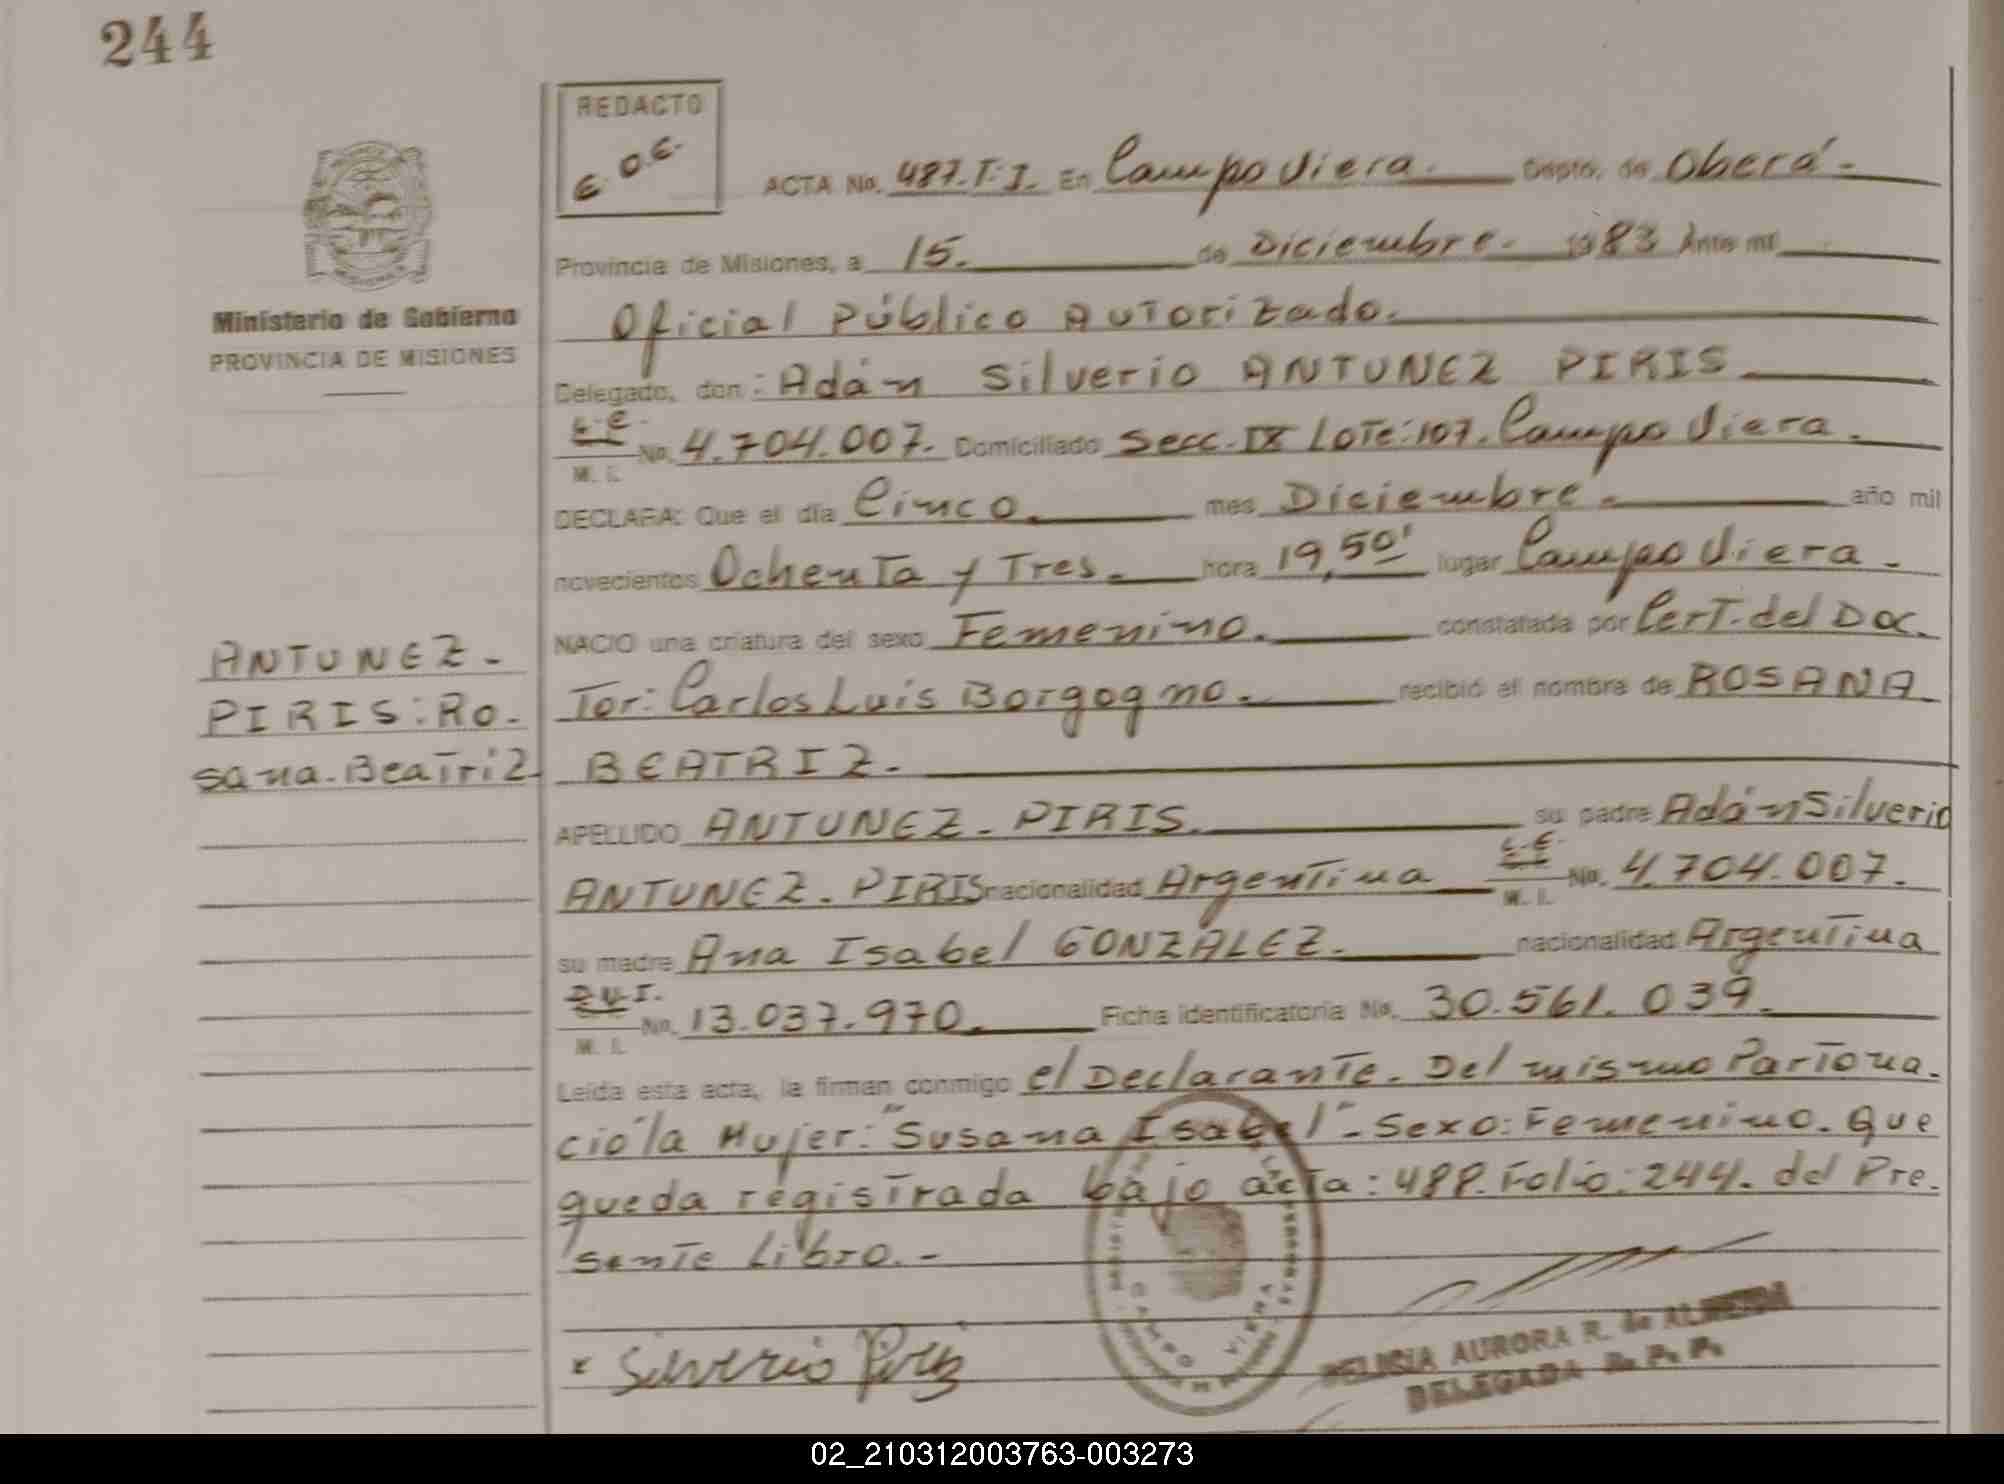 244
REDACTO
E. O.E.
ACTA No. 487.T.I. En Campo Viera. Depto. de Oberá.-
Provincia de Misiones, a 15. de Diciembre. 1983 Ante mí
Ministerio de Gobierno
PROVINCIA DE MISIONES
Oficial Público Autorizado.
Delegado, don: Adán Silverio ANTUNEZ PIRIS
L.E.
M. I. No. 4.704.007. Domiciliado Secc. IX Lote: 107. Campo Viera.
DECLARA: Que el día Cinco. mes Diciembre. año mil
novecientos Ochenta y Tres. hora 19,50' lugar Campo Viera.
NACIO una criatura del sexo Femenino. constatada por Cert. del Doc.
tor: Carlos Luis Borgogno. recibió el nombre de ROSANA
BEATRIZ.
ANTUNEZ-
PIRIS: Ro-
sana. Beatriz
APELLIDO ANTUNEZ-PIRIS. su padre Adán Silverio
ANTUNEZ-PIRIS nacionalidad Argentina L.E. M. I. No. 4.704.007.
su madre Ana Isabel GONZÁLEZ. nacionalidad Argentina
D.N.I.
M. I. No. 13.037.970. Ficha identificatoria No. 30.561.039.
Leída esta acta, la firman conmigo el Declarante. Del mismo Parto na-
ció la Mujer: "Susana Isabel"- Sexo: Femenino. que
queda registrada bajo acta: 488. Folio: 244. del Pre-
sente Libro.-
CAMPO VIERA
x Silverio
AURORA R. de ALMEIDA
DELEGADA R. P. P.
02_210312003763-003273